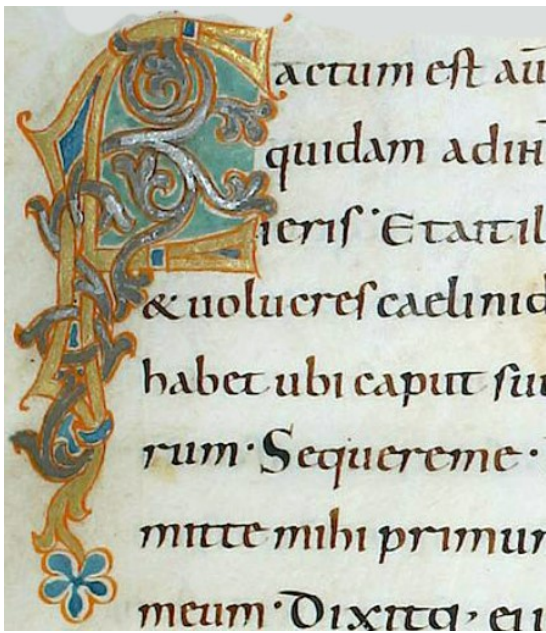 Factum est aū
quidam ad iH
ieris · Et ait il
& uolucres caeli nid
habet ubi caput sui
rum · Sequere me ·
mitte mihi primum
meum · Dixitq, ei